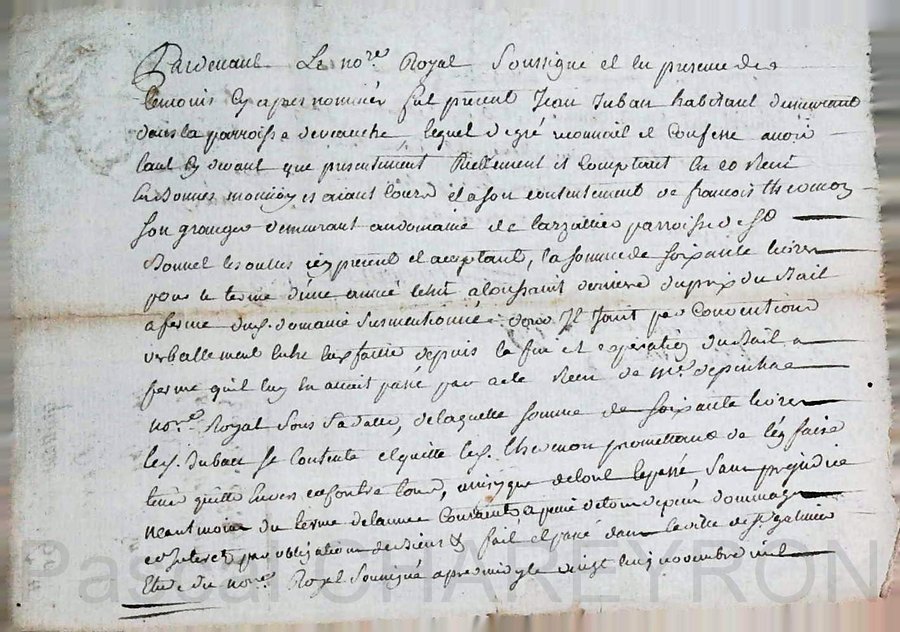 Pardevant Le no.re Royal Soussigne et en presence des
temoins cy apres nommés fut présent Jean Juban habitant demeurant
dans la parroisse lequel de gré reconnait et confesse avoir
tant cy devant que presentement Réellement et comptant en
bonnes et aiant cours et a son contentement de françois theomon
son granger demeurant au domaine de parroisse de St
Bonnet les oulles icy présent et acceptant, la somme de soixante livres
pour le terme d'une année échû a la toussaint derniere du prix du Bail
a ferme du.d. domaine susmentionné par convention
verballement entre eux faitte depuis la fin et expiration du Bail a
ferme qu'il luy en avait passé par acte Receu de m.e
no.re Royal sous sa datte, de laquelle somme de soixante livres
le.d. Juban se contente et quitte le.d. theomon promettant de l'en faire
tenir quitte envers et contre tous, ainsy que de tout le passé sans prejudice
neantmoins du terme de l'année courante a peine de tous depens dommages
et interets par obligation de biens & fait et passé dans la ville de St galmier
Etude du no.re Royal soussigné apres midy le vingt cinq novembre mil
Pascal CHAREYRON